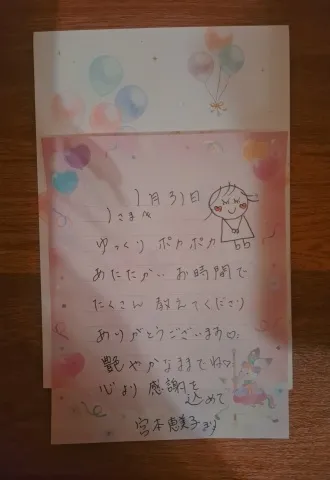 1月31日
うさまへ
ゆっくり ポカポカ
あたたかい お時間で
たくさん 教えてくださり
ありがとうございます♡
艶やかなままでね♡
心より 感謝を
込めて
宮本恵美子より